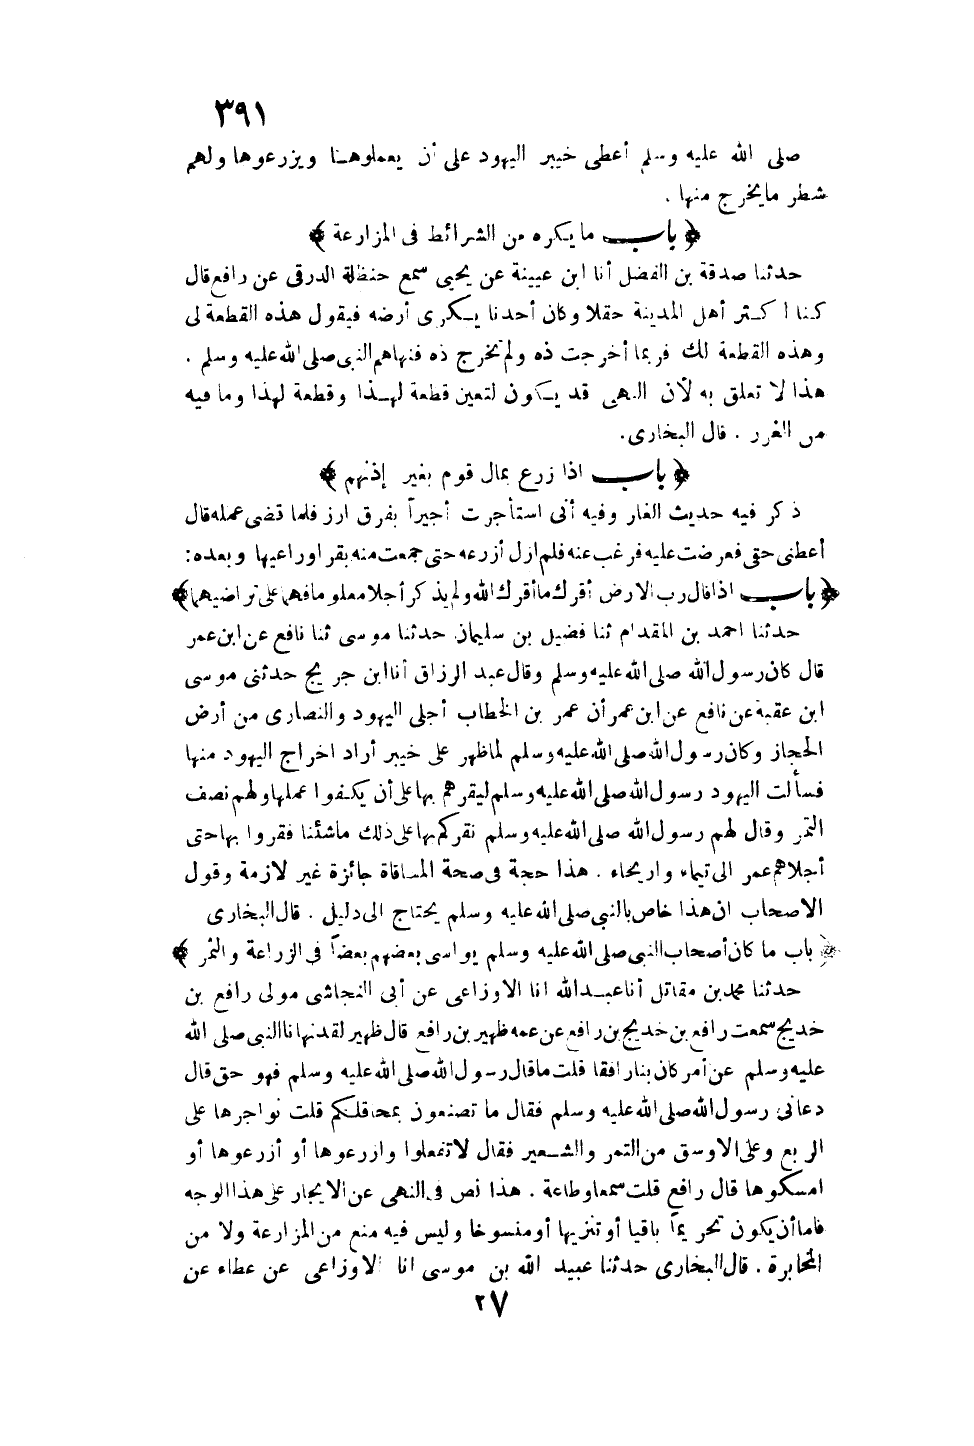 ٣٩١
صلى الله عليه وسلم أعطى خيبر اليهود على أن يعملوهـا ويزرعوها ولهم
شطر مايخرج منها .
﴿ باب ما يكره من الشرائط فى المزارعة ﴾
حدثنا صدقة بن الفضل أنا ابن عيينة عن يحيى سمع حنظلة الدرقى عن رافع قال
كنا اكثر أهل المدينة حقلا وكان أحدنا يكرى أرضه فيقول هذه القطعة لى
وهذه القطعة لك فربما أخرجت ذه ولم تخرج ذه فنهاهم النبى صلى الله عليه وسلم .
هذا لا تعلق به لأن النهى قد يكون لتعين قطعة لهـذا وقطعة لهذا وما فيه
من الغرر . قال البخارى.
﴿ باب اذا زرع بمال قوم بغير إذنهم ﴾
ذكر فيه حديث الغار وفيه أنى استأجرت أجيراً بفرق ارز فلما قضى عمله قال
أعطنى حقى فعرضت عليه فرغب عنه فلم ازل أزرعه حتى جمعت منه بقر اوراعيها وبعده:
﴿ باب اذا قال رب الارض أقرك ما أقرك الله ولم يذكر أجلا معلوما فهما على تراضيهما ﴾
حدثنا احمد بن المقدام ثنا فضيل بن سليمان حدثنا موسى ثنا نافع عن ابن عمر
قال كان رسول الله صلى الله عليه وسلم وقال عبد الرزاق أنا ابن جريج حدثنى موسى
ابن عقبة عن نافع عن ابن عمر أن عمر بن الخطاب أجلى اليهود والنصارى من أرض
الحجاز وكان رسول الله صلى الله عليه وسلم لما ظهر على خيبر أراد اخراج اليهود منها
فسألت اليهود رسول الله صلى الله عليه وسلم ليقرهم بها على أن يكفوا عملها ولهم نصف
التمر وقال لهم رسول الله صلى الله عليه وسلم نقركم بها على ذلك ماشئنا فقروا بها حتى
أجلاهم عمر الى تيماء واريحاء . هذا حجة فى صحة المساقاة جائزة غير لازمة وقول
الاصحاب ان هذا خاص بالنبى صلى الله عليه وسلم يحتاج الى دليل . قال البخارى
﴿ باب ما كان أصحاب النبى صلى الله عليه وسلم يواسى بعضهم بعضاً فى الزراعة والثمر ﴾
حدثنا محمد بن مقاتل أنا عبـد الله انا الاوزاعى عن أبى النجاشى مولى رافع بن
خديج سمعت رافع بن خديج بن رافع عن عمه ظهير بن رافع قال ظهير لقد نهانا النبى صلى الله
عليه وسلم عن أمر كان بنا رافقا قلت ما قال رسول الله صلى الله عليه وسلم فهو حق قال
دعانى رسول الله صلى الله عليه وسلم فقال ما تصنعون بمحاقلكم قلت نواجرها على
الربع وعلى الاوسق من التمر والشـعير فقال لا تفعلوا وازرعوها أو أزرعوها أو
امسكوها قال رافع قلت سمعا وطاعة . هذا نص فى النهى عن الايجار على هذا الوجه
فاما أن يكون تحريماً باقيا أو تنزيها أو منسوخا وليس فيه منع من المزارعة ولا من
المخابرة . قال البخارى حدثنا عبيد الله بن موسى انا الاوزاعى عن عطاء عن
٢٧